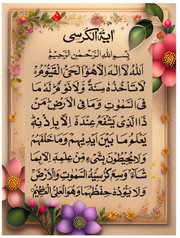 آية الكرسي
بسم الله الرحمن الرحيم
الله لا اله الا هو الحي القيوم
لا تأخذه سنة ولا نوم له ما
في السموت وما في الارض من
ذا الذي يشفع عنده الا باذنه
يعلم ما بين ايديهم وما خلفهم
ولا يحيطون بشيء من علمه الا بما
شاء وسع كرسيه السموت والارض
ولا يؤده حفظهما وهو العلي العظيم